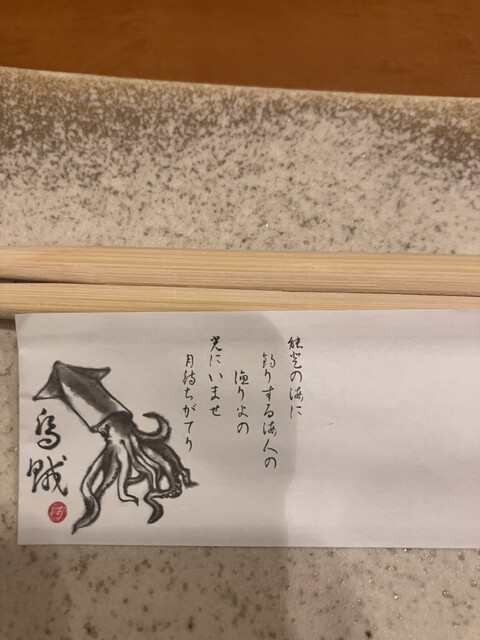 能登の海に
釣りする海人の
漁り火の
光にいませ
月待ちがてり
烏賊